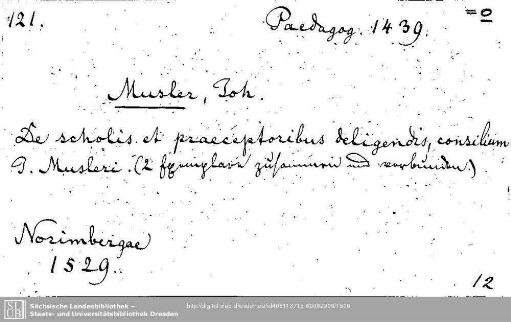 121.
Paedagog. 1439.
= 0
Musler, Joh.
De scholis et praeceptoribus deligendis, consilium
G. Musleri. (2 Exemplare zusammen und verbunden.)
Norimbergae
1529.
12
Sächsische Landesbibliothek –
Staats- und Universitätsbibliothek Dresden